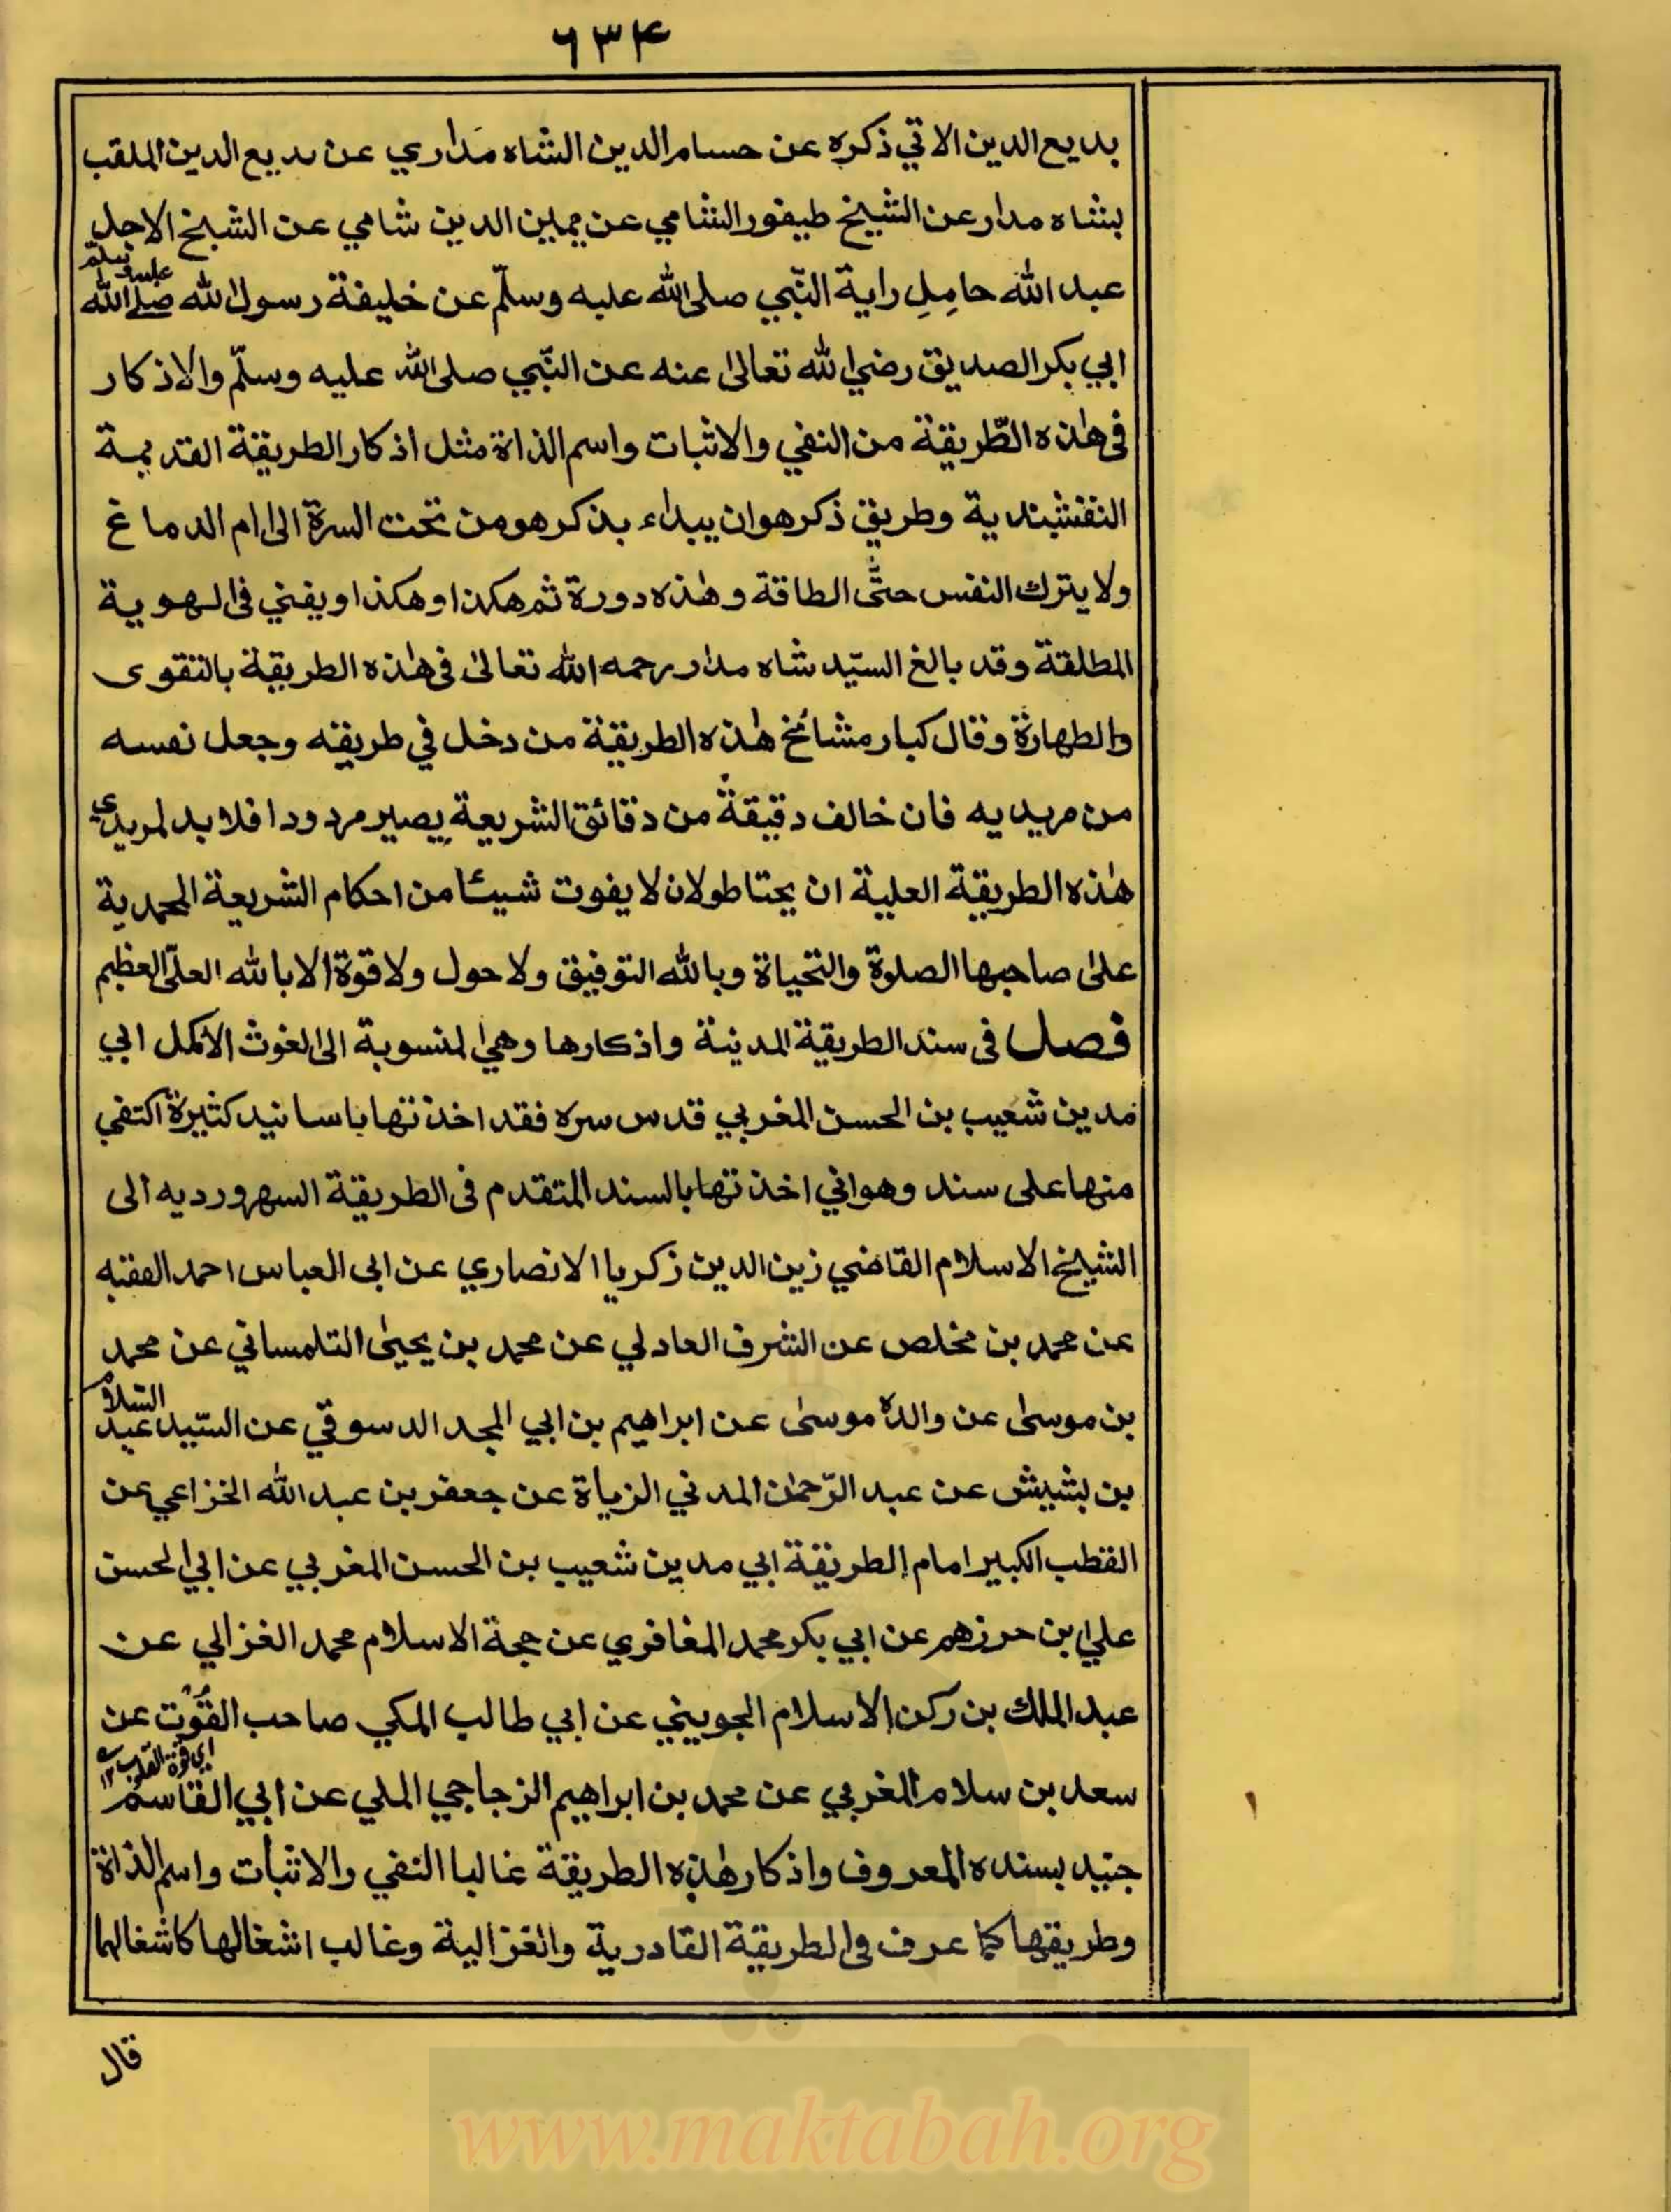 ٦٣٤
بديع الدين الاتي ذكره عن حسام الدين الشاه مداري عن بديع الدين الملقب
بشاه مدار عن الشيخ طيفور الشامي عن يمين الدين شامي عن الشيخ الاجل
عبد الله حامِلِ راية النّبي صلى الله عليه وسلّم عن خليفة رسول الله صلى الله عليه وسلم
ابي بكر الصديق رضي الله تعالى عنه عن النّبي صلى الله عليه وسلّم والاذكار
فى هٰذه الطّريقة من النفي والاثبات واسم الذاة مثل اذكار الطريقة القديمة
النقشبندية وطريق ذكر هو ان يبداء بذكر هو من تحت السرة الى ام الدماغ
ولا يترك النفس حتّى الطاقة وهٰذه دورة ثم هكذا وهكذا ويفني فى الهوية
المطلقة وقد بالغ السيّد شاه مدار رحمه الله تعالىٰ فى هٰذه الطريقة بالتقوى
والطهارة وقال كبار مشائخ هٰذه الطريقة من دخل في طريقه وجعل نفسه
من مريديه فان خالف دقيقةً من دقائق الشريعة يصير مردودا فلا بد لمريدي
هٰذه الطريقة العلية ان يحتاطو لان لا يفوت شيئا من احكام الشريعة المحمدية
علىٰ صاحبها الصلوة والتحياة وبالله التوفيق ولا حول ولا قوة الا بالله العلي العظيم
فصل فى سند الطريقة المدينة واذكارها وهي المنسوبة الى الغوث الاكمل ابي
مدين شعيب بن الحسن المغربي قدس سره فقد اخذتها باسانيد كثيرة اكتفي
منها على سند وهو اني اخذتها بالسند المتقدم فى الطريقة السهرورديه الى
الشيخ الاسلام القاضي زين الدين زكريا الانصاري عن ابى العباس احمد الفقيه
عن محمد بن مخلص عن الشرف العادلي عن محمد بن يحيىٰ التلمساني عن محمد
بن موسىٰ عن والده موسىٰ عن ابراهيم بن ابي المجد الدسوقي عن السّيد عبد السّلام
بن بشيش عن عبد الرّحمٰن المدني الزياة عن جعفر بن عبد الله الخزاعي عن
القطب الكبير امام الطريقة ابي مدين شعيب بن الحسن المغربي عن ابي الحسن
علي ابن حرزهم عن ابي بكر محمد المغافري عن حجة الاسلام محمد الغزالي عن
عبد الملك بن ركن الاسلام الجويني عن ابي طالب المكي صاحب القُوْت عن
اي قوة القلوب ١٢
سعد بن سلام المغربي عن محمد بن ابراهيم الزجاجي الملي عن ابي القاسم
جنيد بسنده المعروف واذكار هٰذه الطريقة غالبا النفي والاثبات واسم الذاة
وطريقها كما عرف فى الطريقة القادرية والغزالية وغالب اشغالها كاشغالها
قال
www.maktabah.org